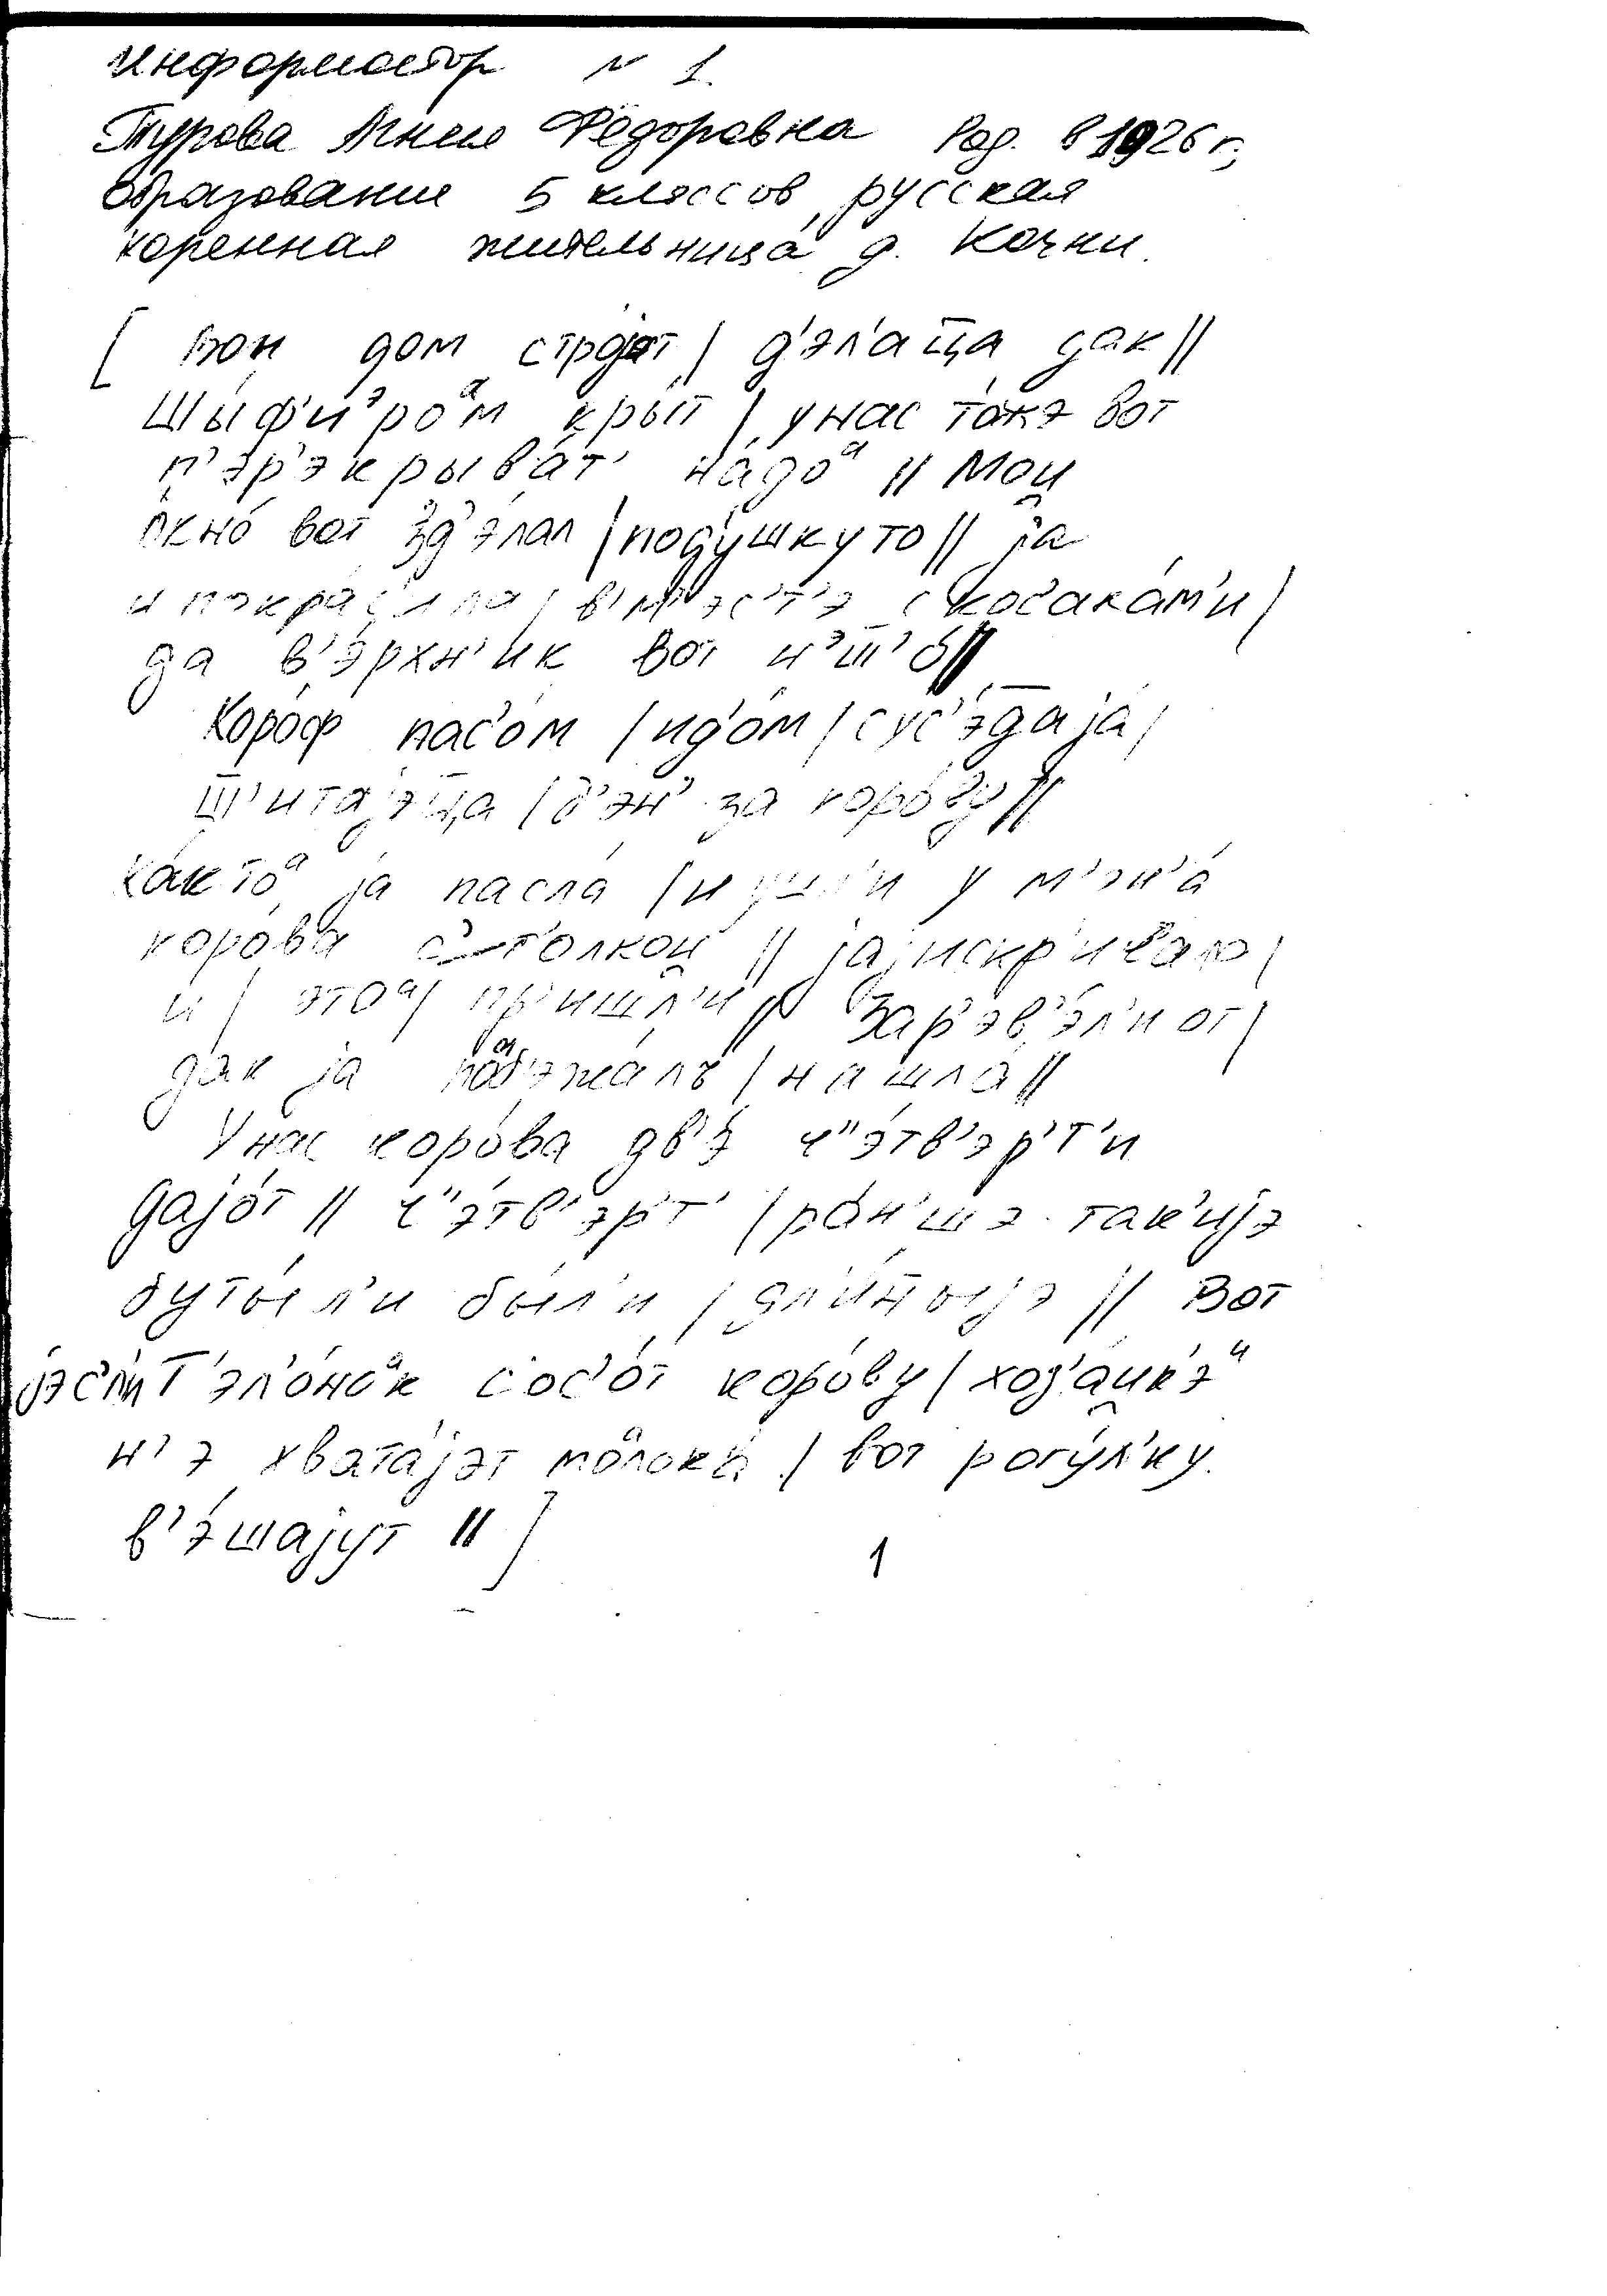 Информатор N 1.
Турова Анна Фёдоровна Род. в 1926 г.,
образование 5 классов, русская
коренная жительница д. Кочки.
[ вон дом стро́јат | д'э́л'ац̅а дак ||
шы́ф'иэроам кры́т | у нас то́жэ вот
п'эр'экрыва́т' на́доа || Мой
окно́ вот зд'э́лал | поду́шку то || ја
и покра́с'ила | в'м'э́с'т'э с косака́м'и |
да в'э́рхн'ик вот
Коро́ф пас'о́м | ид'о́м | сус'э́даја |
ш̅'ита́јэц̅а | д'эн' за коро́ву ||
ка́к тоа ја пасла́ | и ушл'и у м'эн'а́
коро́ва с т'о́лкой || ја
и | э́тоа | пр'ишл'и́ || Зар'эв'э́л'и от |
дак ја поаб'эжа́лъ | нашла́ ||
У нас коро́ва дв'э́ ч"э́тв'эр'т'и
дајо́т || ч"э́тв'эр'т' | ра́н'шэ так'ијэ
буты́л'и бы́л'и | дл'и́н̅ыјэ || Вот
јэ́с'л'и т'эл'о́ноак сос'о́т коро́ву | хоз'а́йк'эи
н'э хвата́јэт моалока́ | вот рогу́л'ку
в'э́шајут || ]
1